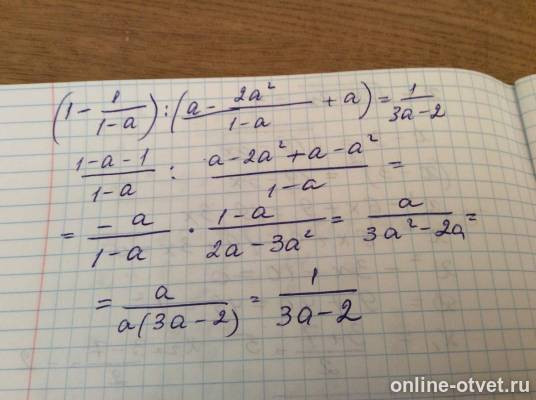 (1 - 1/(1-a)) : ((a - 2a²)/(1-a) + a) = 1/(3a-2)
(1-a-1)/(1-a) : (a-2a²+a-a²)/(1-a) =
= (-a)/(1-a) · (1-a)/(2a-3a²) = a/(3a²-2a) =
= a/(a(3a-2)) = 1/(3a-2)
online-otvet.ru